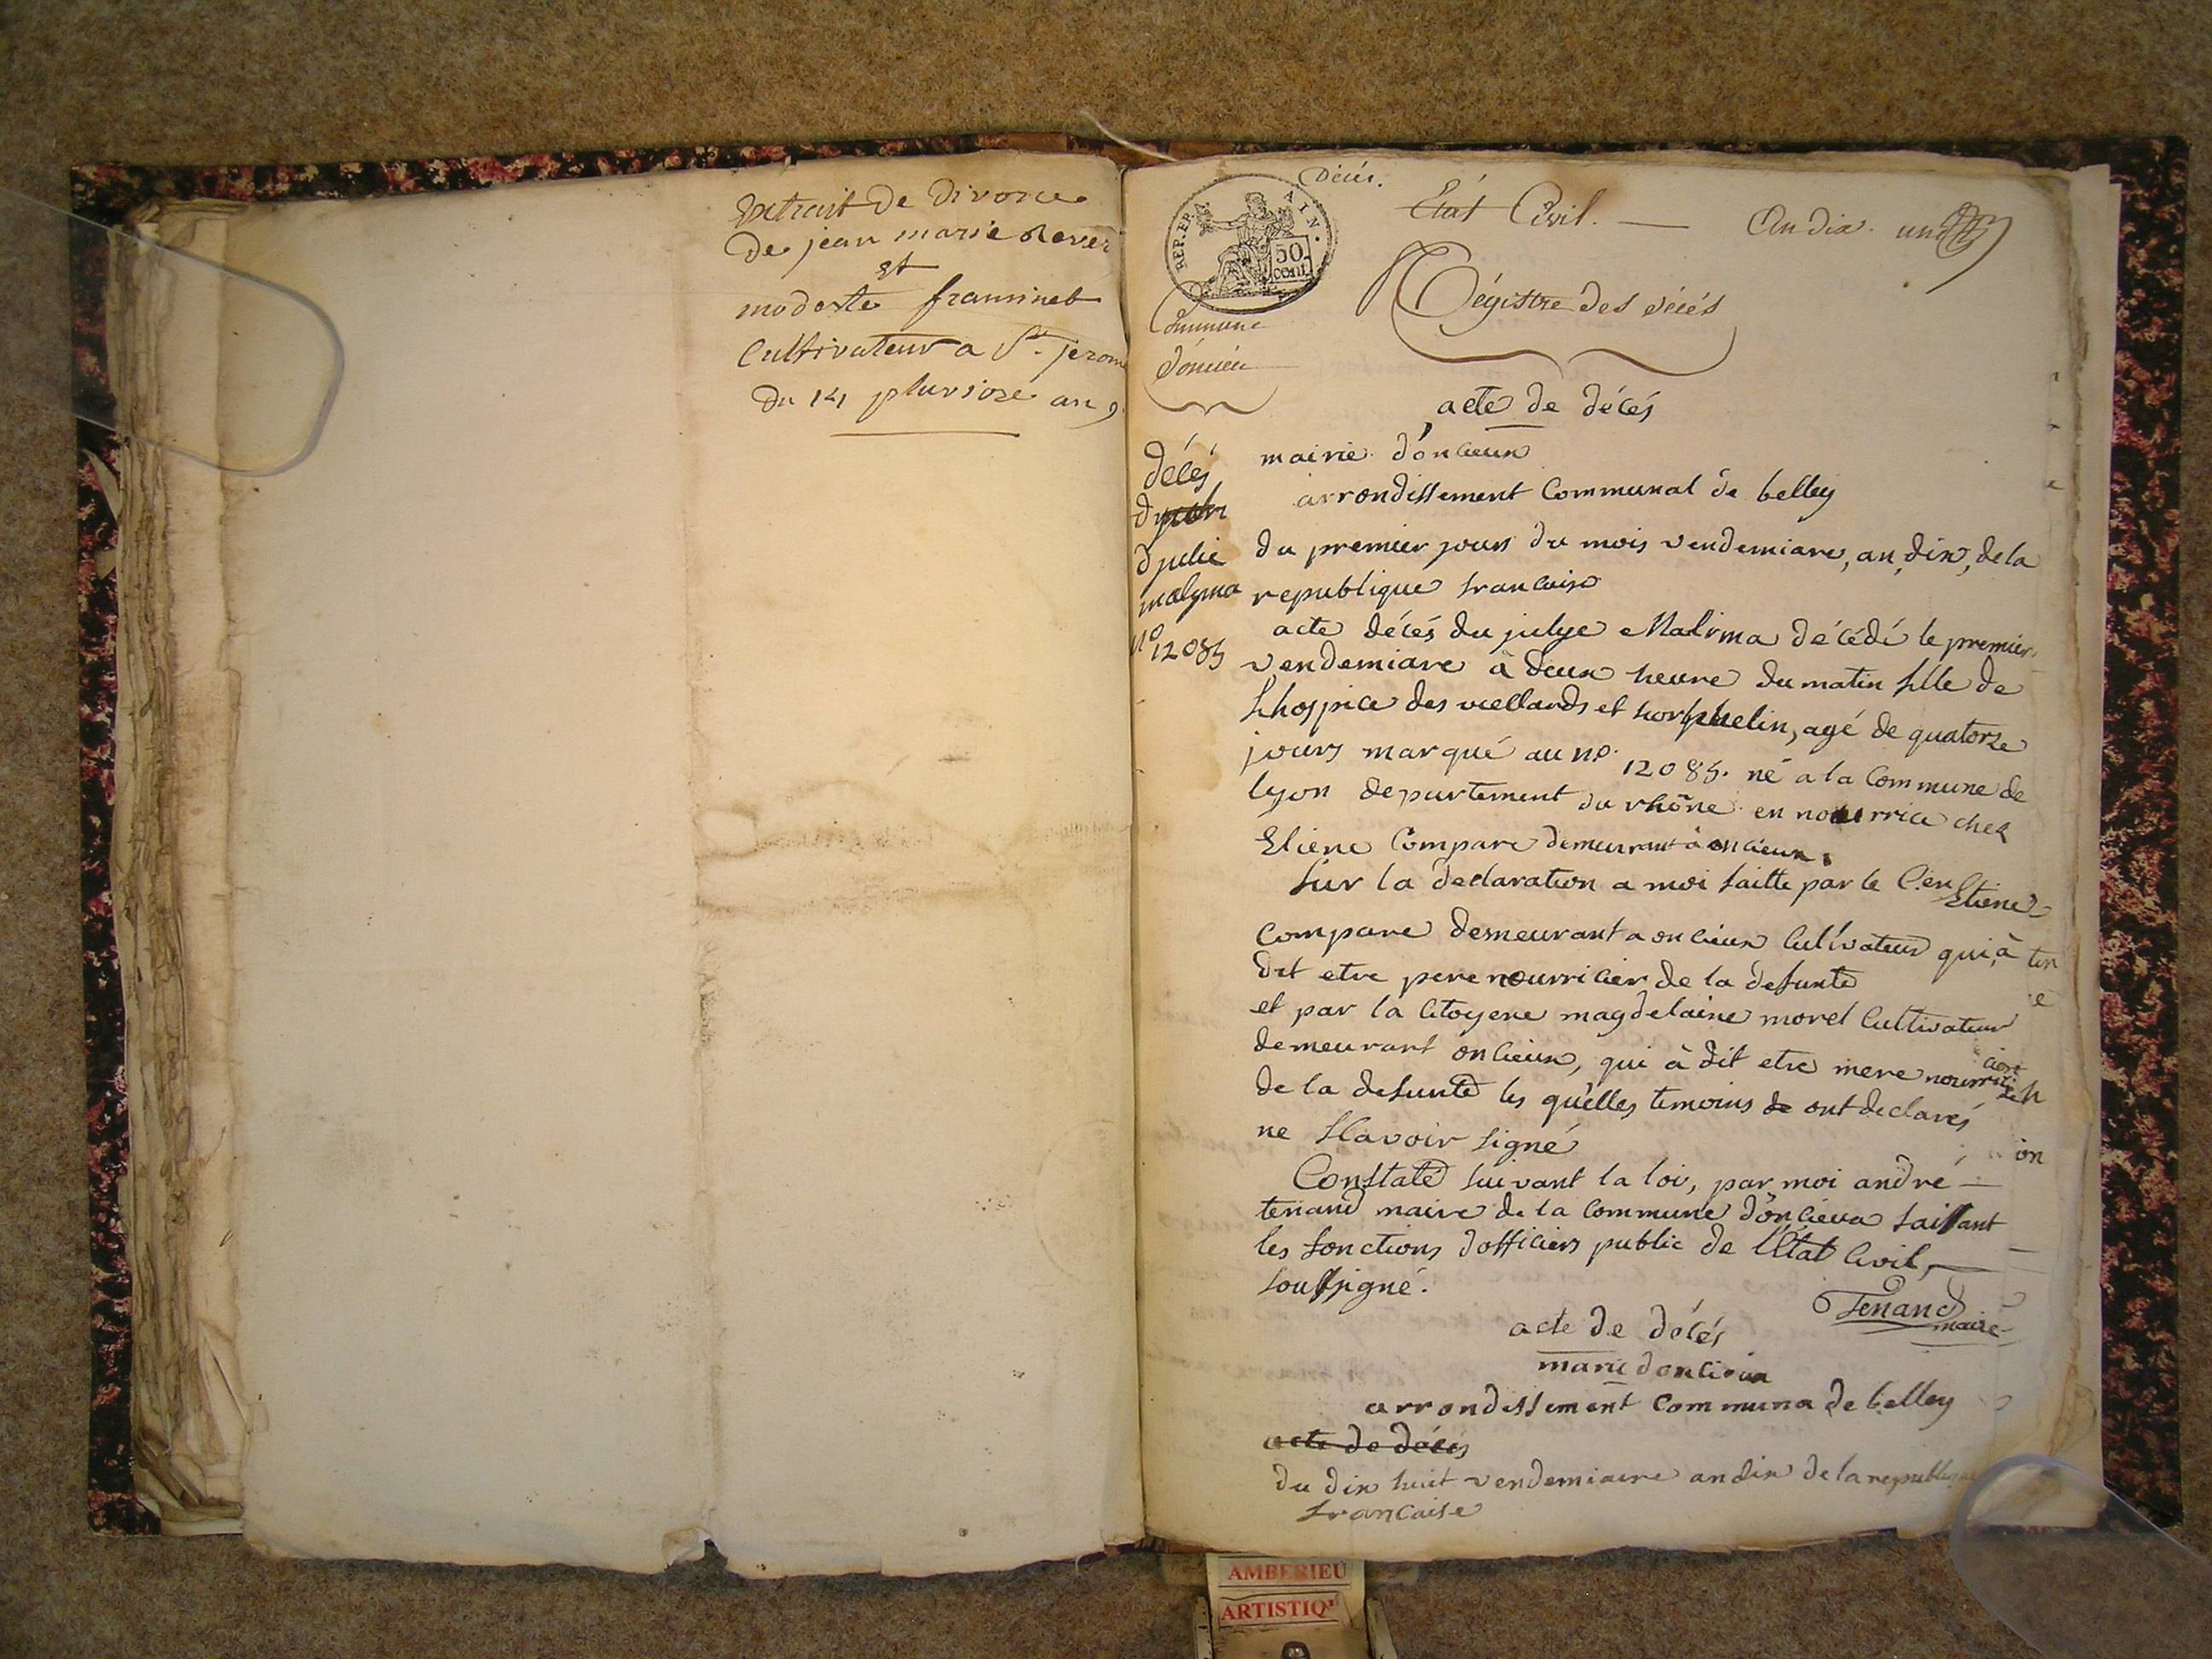 Extrait de Divorce
De jean marie Rever
et
modeste framinet
Cultivateur a St. jerome
Du 14 pluviose an 9
Décés.
REP. FR.
AIN.
50 cent.
État Civil. — An dix. un
Régistre des décés
Commune
d'oncieu
acte de décés
décés
d
d julie
malyma
n° 12085
mairie d'oncieux
arrondissement Communal de belley
du premier jour du mois vendemiare, an, dix, de la
republique francaise
acte décés du julye Malima décédé le premier
vendemiare à deux heure du matin fille de
Lhospice des viellards et horphelin, agé de quatorze
jours marqué au n°. 12085. né a la Commune de
lyon departement du rhône en nourrice chez
Etiene Compare demeurant à oncieux.
Sur la declaration a moi faitte par le C.en Etiene
Compare demeurant a oncieux Cultivateur qui à
dit etre pere nourricier de la defunte
et par la Citoyene magdelaine morel Cultivateur
demeurant oncieux, qui à dit etre mere nourrice
de la defunte les qu'elles temoins de ont declarés
ne scavoir signé
Constaté suivant la loi, par moi andré —
tenand maire de la Commune d'oncieux faissant
les fonctions d'officiers public de l'Etat Civil, —
soussigné.
Tenand
maire
acte de décés
marie d'oncieux
arrondissement Communa de belley
acte de décés
du dix huit vendemiaire an dix de la republique
francaise
AMBERIEU
ARTISTIQ